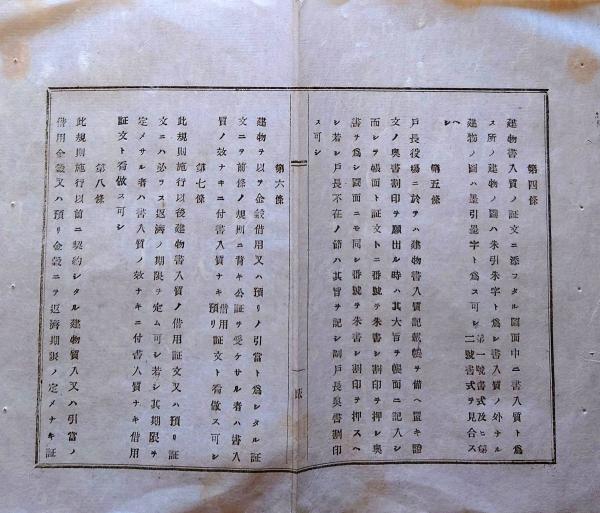 第四條
建物書入質ノ証文ニ添フタル圖面中ニ書入質ト爲
ス所ノ建物ノ圖ハ朱引朱字ト爲シ書入質ノ外ナル
建物ノ圖ハ墨引墨字ト爲ス可シ 第一號書式及ヒ第二號書式ヲ見合スヘ
シ
第五條
戸長役場ニ於テハ建物書入質記載帳ヲ備ヘ置キ證
文ノ奥書割印ヲ願出ル時ハ其大旨ヲ帳面ニ記入シ
而シテ帳面ト証文トニ番號ヲ朱書シ割印ヲ押シ奥
書ヲ爲シ圖面ニモ同シ番號ヲ朱書シ割印ヲ押スヘ
シ若シ戸長不在ノ節ハ其旨ヲ記シ副戸長奥書割印
ス可シ
第六條
建物ヲ以テ金穀借用又ハ預リノ引當ト爲シタル証
文ニテ前條ノ規則ニ背キ公証ヲ受ケサル者ハ書入
質ノ效ナキニ付書入質ナキ借用預リ証文ト看做ス可シ
第七條
此規則施行以後建物書入質ノ借用証文又ハ預リ証
文ニハ必ラス返濟ノ期限ヲ定ム可シ若シ其期限ヲ
定メサル者ハ書入質ノ效ナキニ付書入質ナキ借用
証文ト看做ス可シ
第八條
此規則施行以前ニ契約シタル建物書入質又ハ引當ノ
借用金穀又ハ預リ金穀ニテ返濟期限ノ定メナキ証